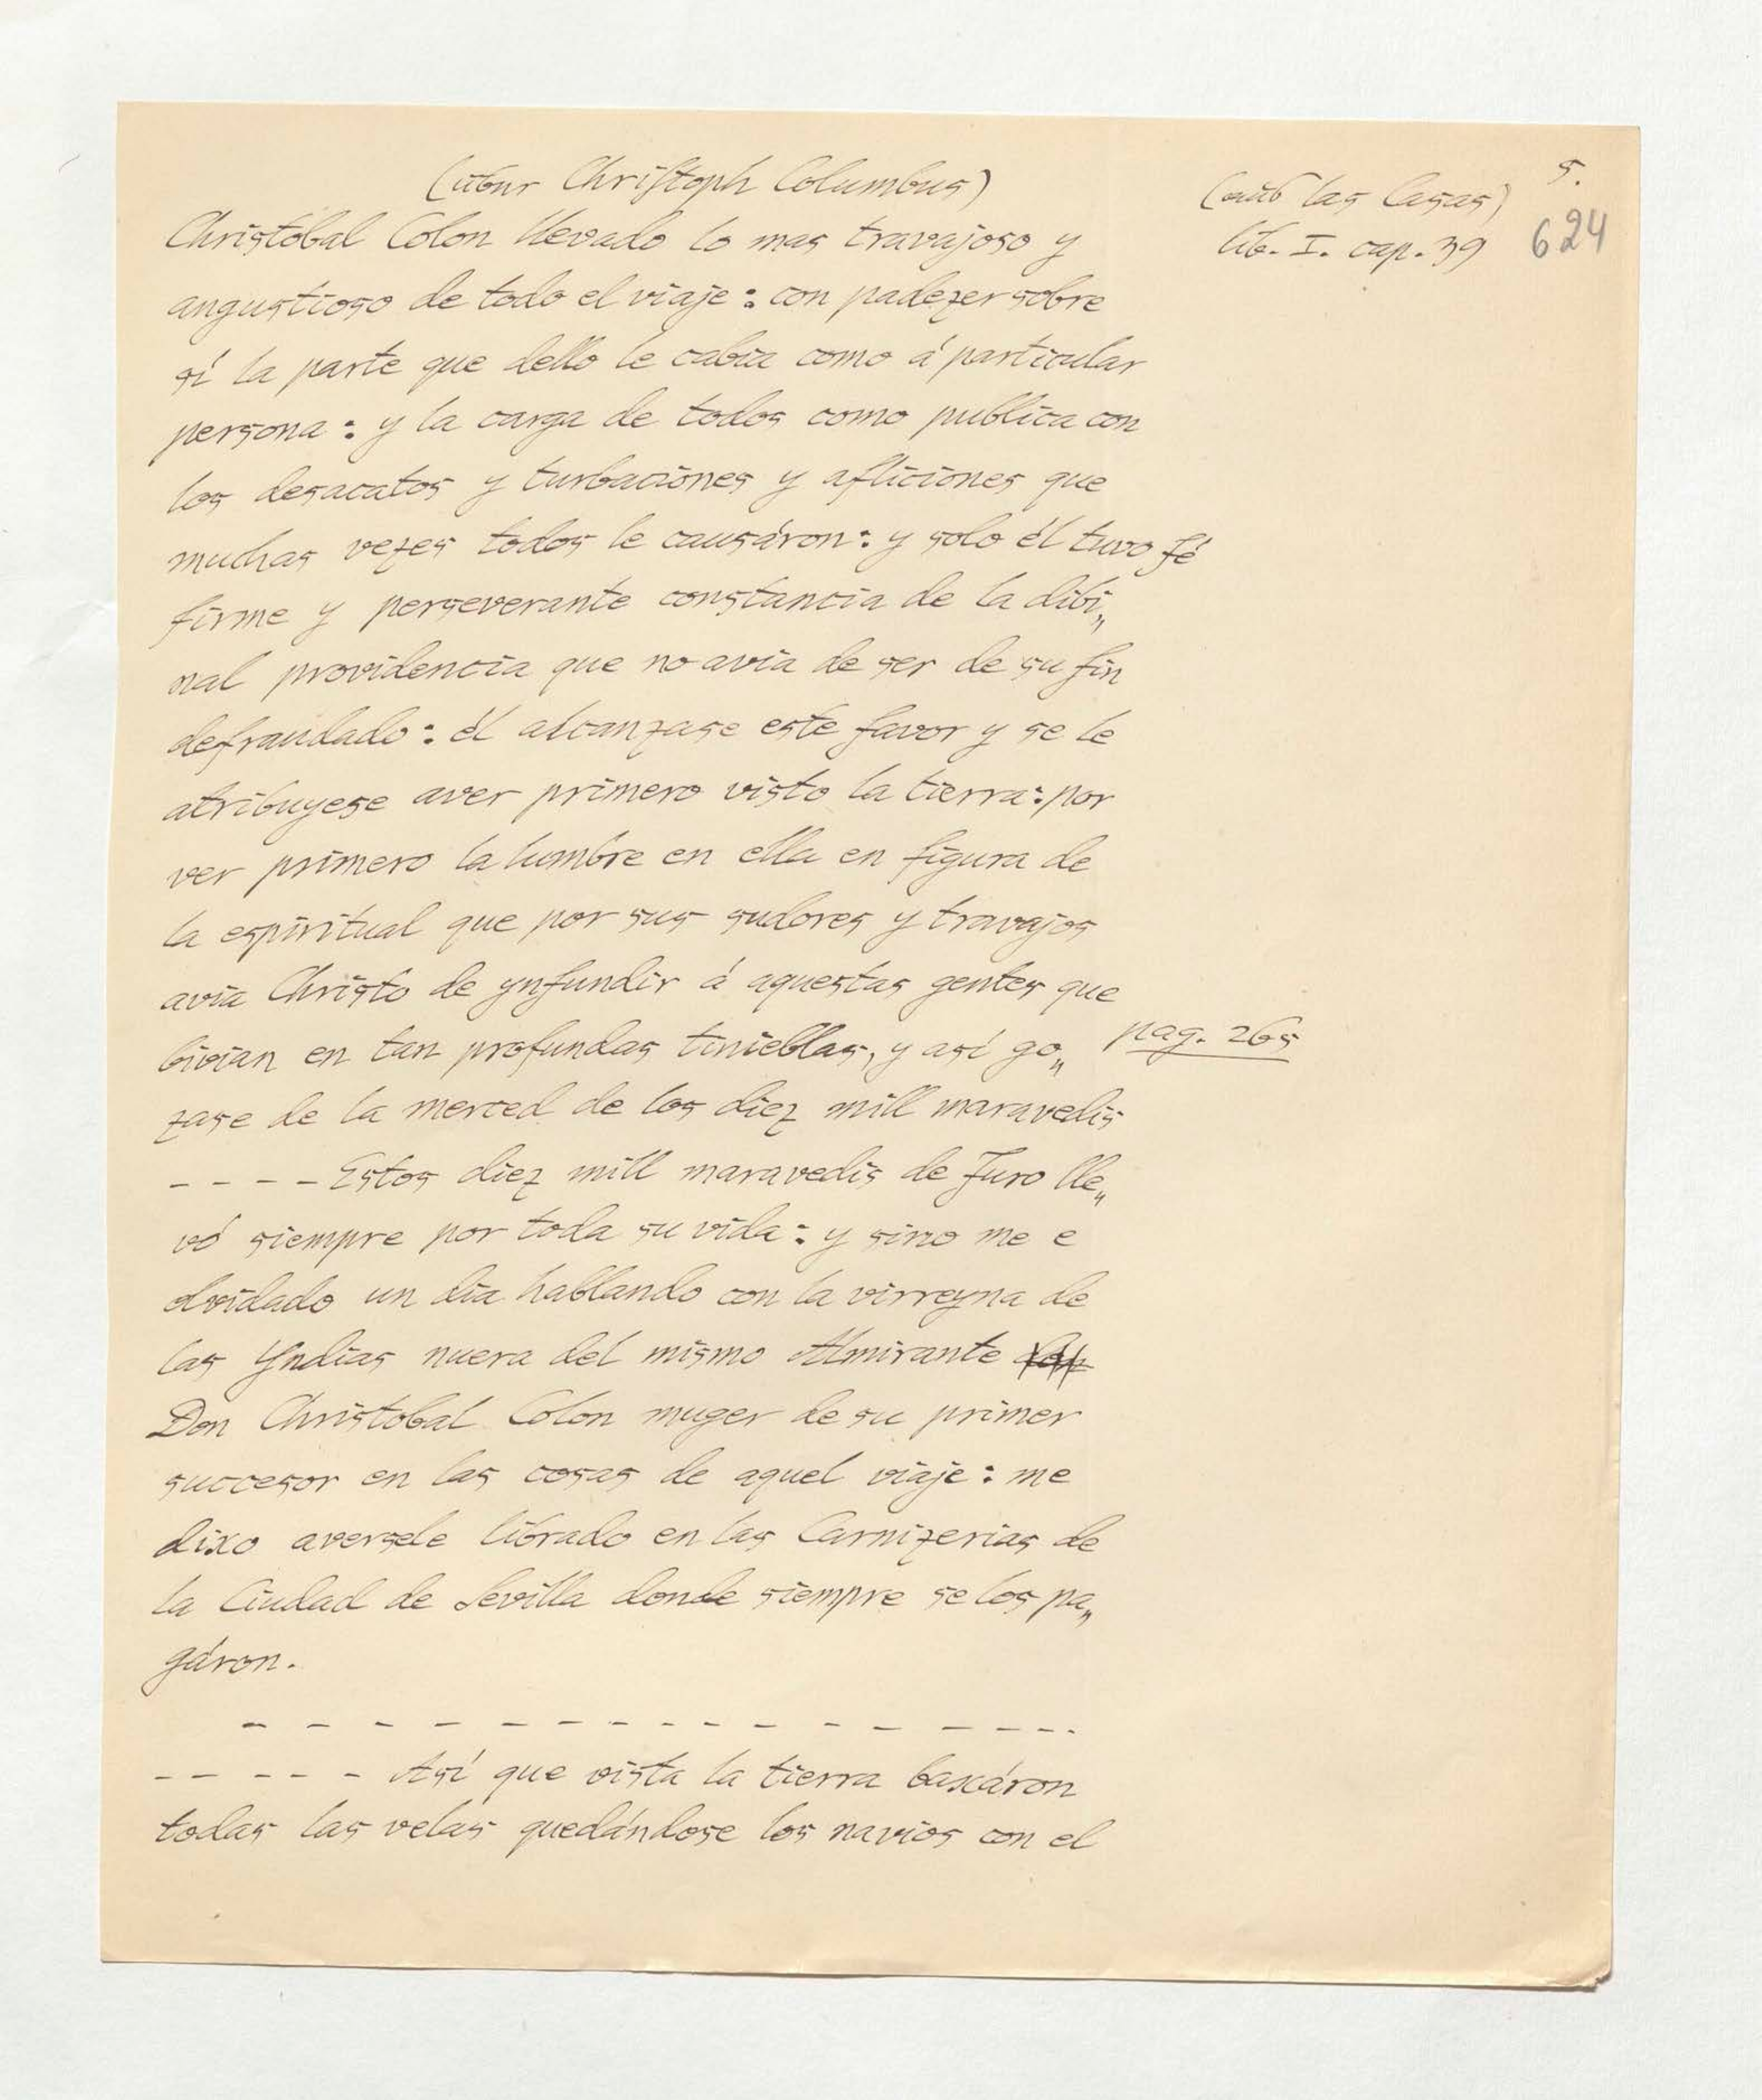 (über Christoph Columbus)
(aus las Casas)
5.
lib. I. cap. 39
624
Christobal Colon llevado lo mas travajoso y
angustioso de todo el viaje: con padezer sobre
sí la parte que dello le cabia como á particular
persona: y la carga de todos como publica con
los desacatos y turbaciones y afliciones que
muchas vezes todos le causáron: y solo él tuvo fé
firme y perseverante constancia de la dibi„
nal providencia que no avia de ser de su fin
defraudado: él alcanzase este favor y se le
atribuyese aver primero visto la tierra: por
ver primero la lumbre en ella en figura de
la espiritual que por sus sudores y travajos
avia Christo de ynfundir á aquestas gentes que
bivian en tan profundas tinieblas, y así go„
pag. 265
zase de la merced de los diez mill maravedis
- - - - Estos diez mill maravedis de Juro lle„
vó siempre por toda su vida: y sino me e
olvidado un dia hablando con la virreyna de
las Yndias nuera del mismo Almirante
Don Christobal Colon muger de su primer
succesor en las cosas de aquel viaje: me
dixo aversele librado en las Carnizerias de
la Ciudad de Sevilla donde siempre se los pa„
gáron.
- - - - - - - - - - - - - - - -.
- - - - - Así que vista la tierra baxáron
todas las velas quedándose los navios con el